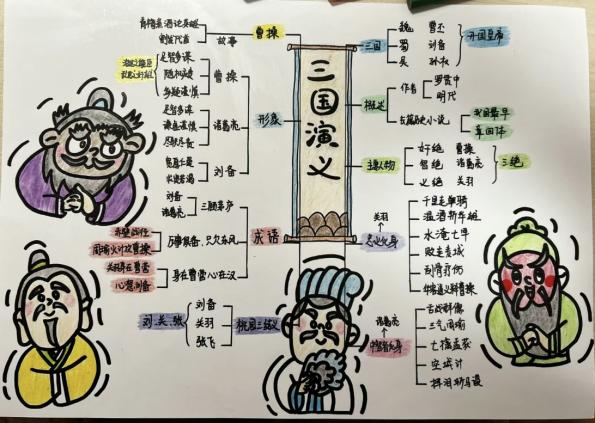 三国演义
青梅煮酒论英雄
割发代首
故事
曹操
足智多谋
随机应变
多疑谨慎
曹操
足智多谋
谨慎
尽职尽责
诸葛亮
形象
刘备
刘备
诸葛亮
三顾茅庐
万事俱备,只欠东风
成语
周瑜火计攻曹操
关羽身在曹营
心想刘备
身在曹营心在汉
刘、关、张
刘备
关羽
张飞
桃园三结义
三国
魏
曹丕
蜀
刘备
吴
孙权
开国皇帝
概述
作者
罗贯中
明代
古典历史小说
我国最早
章回体
主要人物
奸绝
曹操
智绝
诸葛亮
义绝
关羽
三绝
关羽
忠义化身
千里走单骑
温酒斩华雄
水淹七军
败走麦城
刮骨疗伤
华容道义释曹操
诸葛亮
舌战群儒
三气周瑜
七擒孟获
空城计
挥泪斩马谡